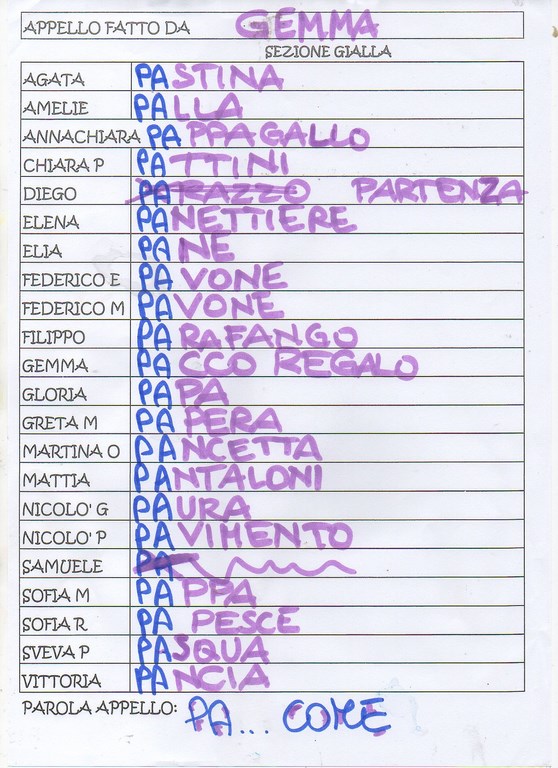 APPELLO FATTO DA GEMMA
SEZIONE GIALLA
AGATA PASTINA
AMELIE PALLA
ANNACHIARA PAPPAGALLO
CHIARA P PATTINI
DIEGO PARAZZO PARTENZA
ELENA PANETTIERE
ELIA PANE
FEDERICO E PAVONE
FEDERICO M PAVONE
FILIPPO PARAFANGO
GEMMA PACCO REGALO
GLORIA PAPA
GRETA M PAPERA
MARTINA O PANCETTA
MATTIA PANTALONI
NICOLO' G PAURA
NICOLO' P PAVIMENTO
SAMUELE PA
SOFIA M PAPPA
SOFIA R PA PESCE
SVEVA P PASQUA
VITTORIA PANCIA
PAROLA APPELLO: PA... COME